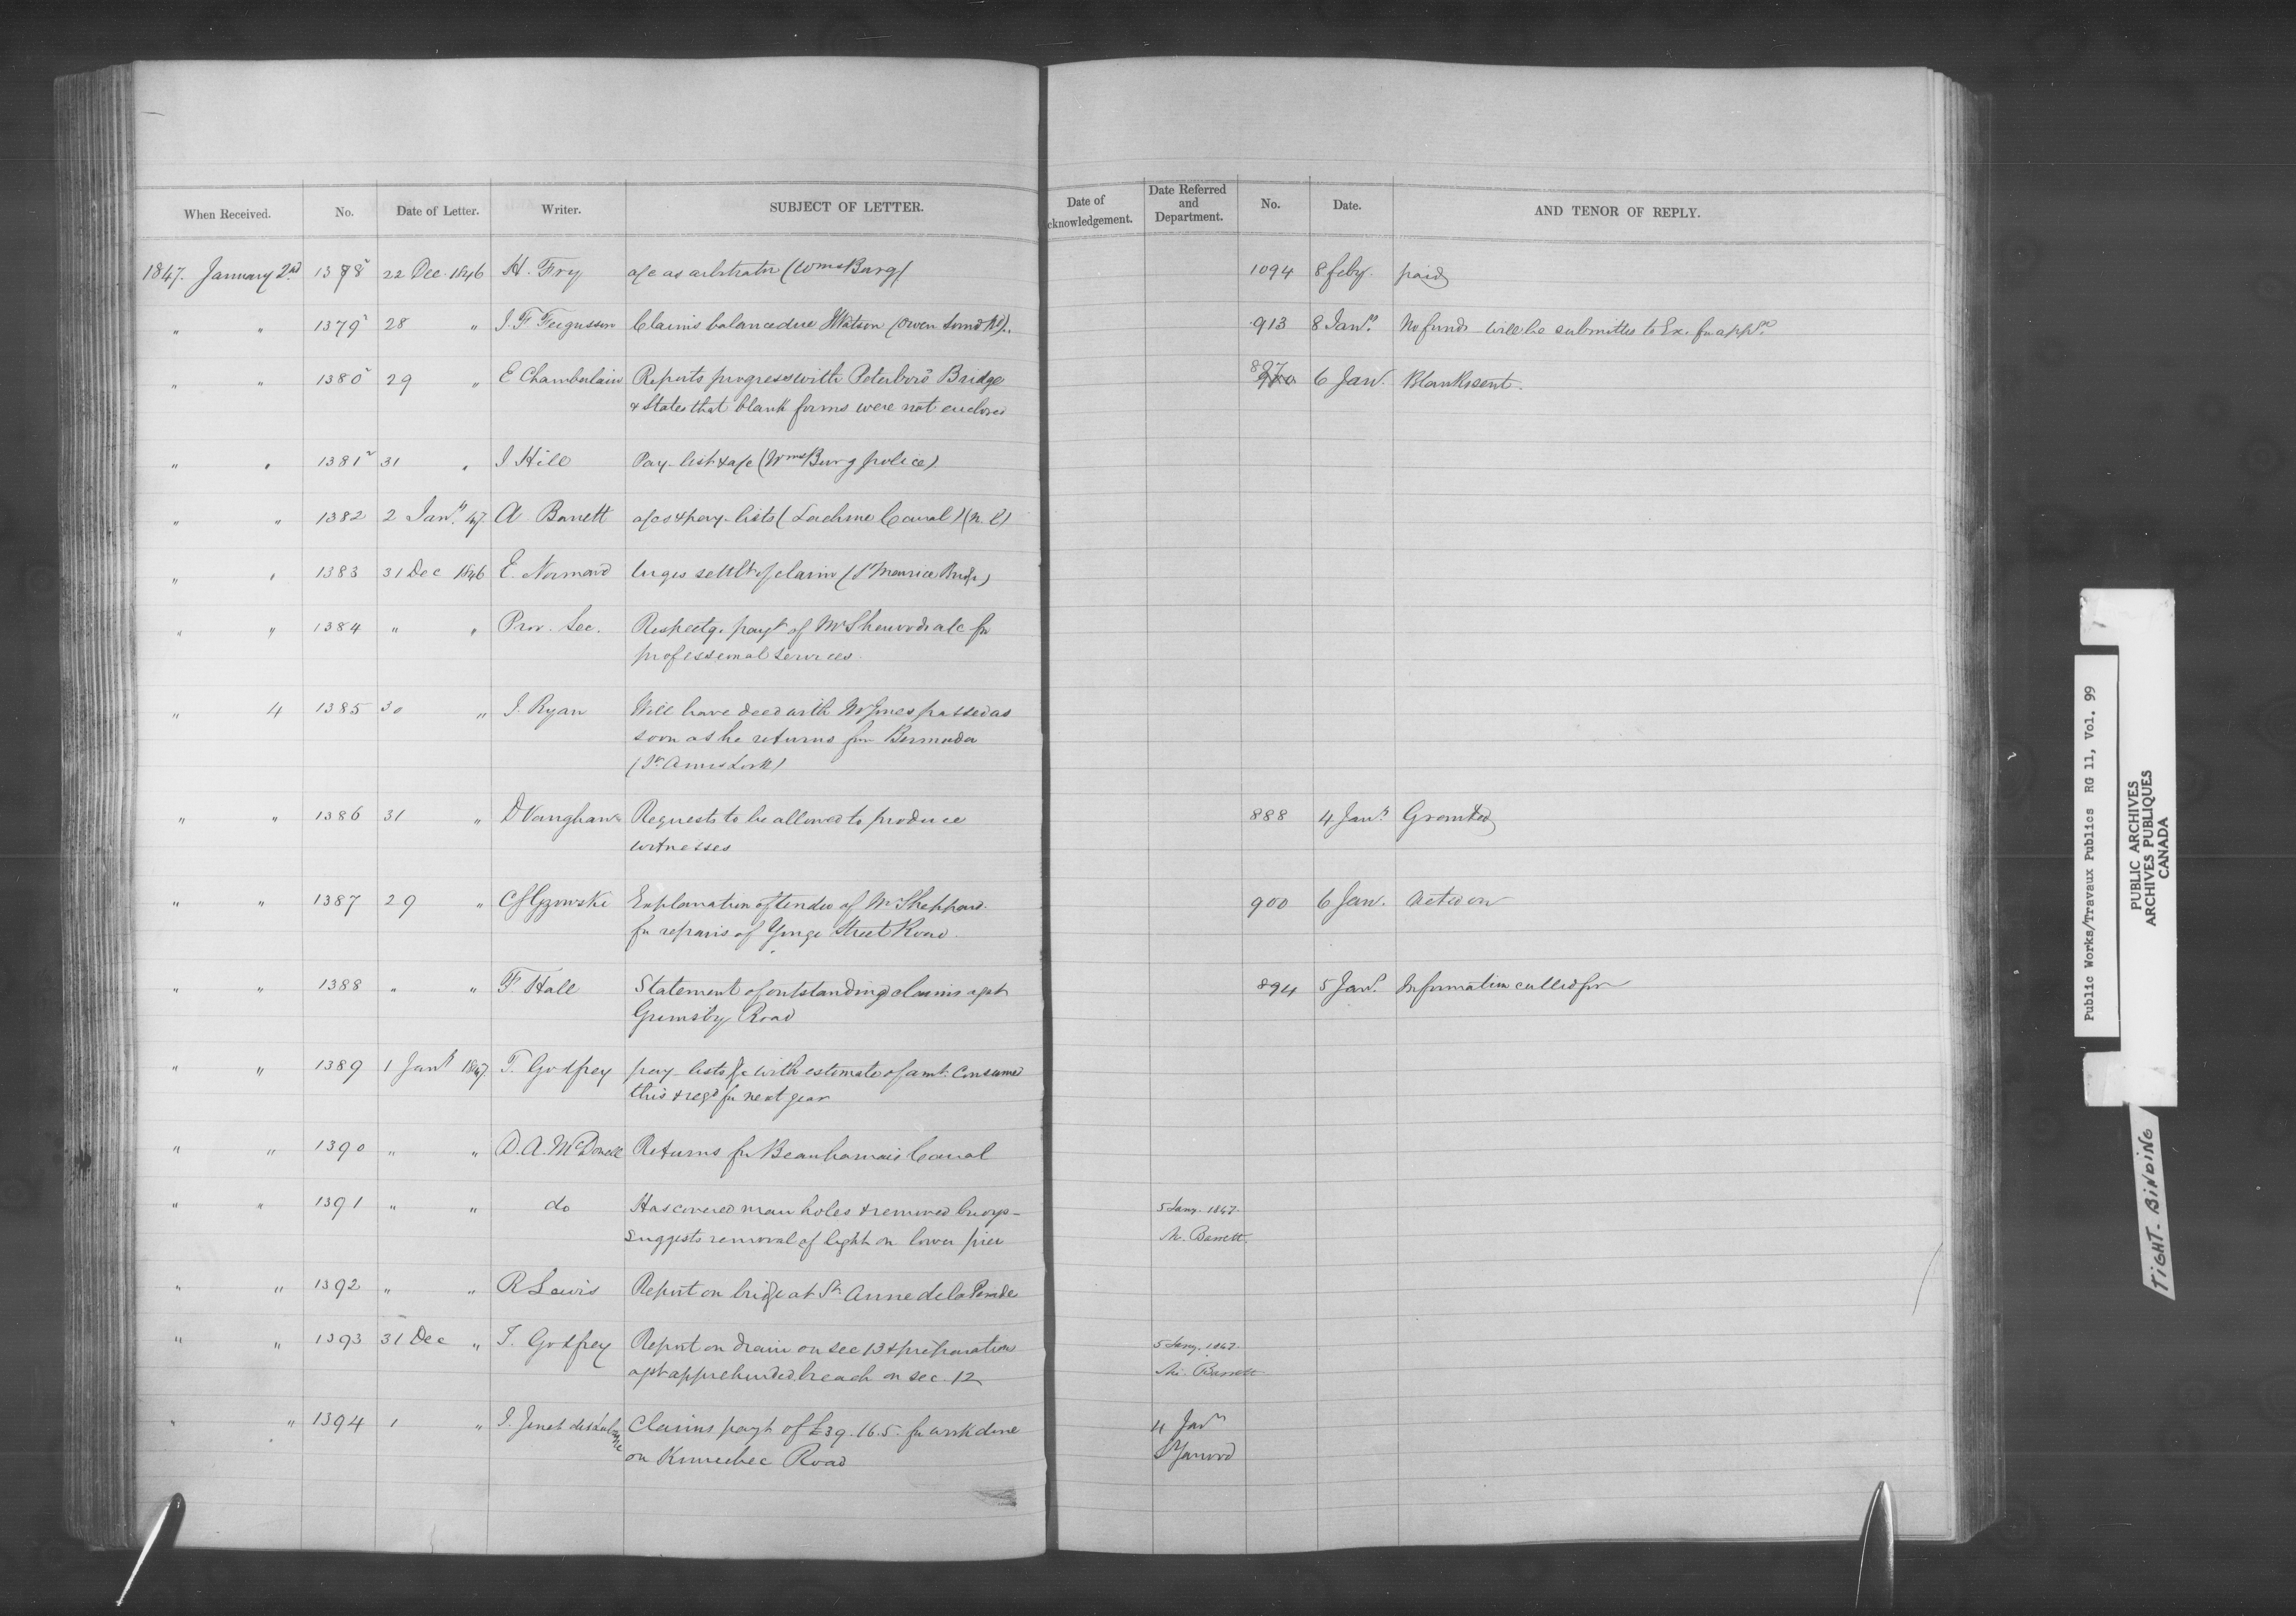 When Received. No. Date of Letter. Writer. SUBJECT OF LETTER. Date of cknowledgement. Date Referred and Department. No. Date. AND TENOR OF REPLY.
1847. January 2nd 1378 22 Dec. 1846 H. Fry a/c as arbitrator (WmsBurg) 1094 8 feby. paid
" " 1379 28 " J. F Fergusson Claims balance due Watson (Owen Sound Rd). 913 8 Jany. No funds will be submitted to Ex. for app
" " 1380 29 " E Chamberlain Reports progress with Peterboro Bridge 897 6 Jany. Blanks sent.
& states that blank forms were not enclosed
" " 1381 31 " J Hill Pay-list & a/c (WmsBurg police)
" " 1382 2 Jany. 47 A Barrett a/cs & pay-lists (Lachine Canal) (n. l)
" " 1383 31 Dec 1846 E. Normand Urges settlt of claim (St Maurice Bridge)
" " 1384 " " Prov. Sec. Respectg. payt of Mr Sherwoods a/c for
professional services.
" 4 1385 30 " J. Ryan Will have deed with Mr Jones passed as
soon as he returns from Bermuda
(St Annes Lock)
" " 1386 31 " D Vaughan Requests to be allowed to produce 888 4 Jany. Granted
witnesses
" " 1387 29 " C S Gzowski Explanation of tender of Mr Sheppard 900 6 Jany. Acted on
for repairs of Yonge Street Road.
" " 1388 " " F Hall Statement of outstanding claims agst 894 5 Jany. Information called for
Grimsby Road
" " 1389 1 Jany 1847. T. Godfrey pay-lists &c with estimate of amt. Consumed
this & reqd for next year
" " 1390 " " D. A. McDonell Returns for Beauharnais Canal
" " 1391 " " do Has covered man holes & removed buoys- 5 Jany. 1847.
suggests removal of light on lower pier Mr. Barrett.
" " 1392 " " R Lewis Report on bridge at St Anne de la Perade
" " 1393 31 Dec " T. Godfrey Report on drain on sec 13 & preparations 5 Jany. 1847.
agst apprehended breach on sec. 12 Mr. Barrett
" " 1394 1 " J. Claims payt of £39.16.5. for work done 4 Jany
on Kennebec Road Yarwood
Public Works/Travaux Publics RG 11, Vol. 99
PUBLIC ARCHIVES
ARCHIVES PUBLIQUES
CANADA
TIGHT-BINDING